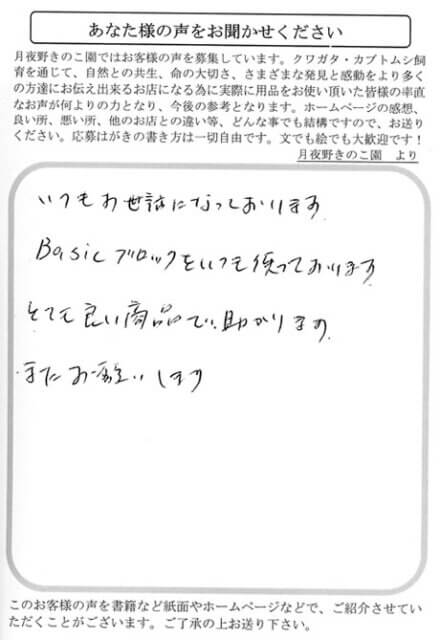 あなた様の声をお聞かせください
月夜野きのこ園ではお客様の声を募集しています。クワガタ・カブトムシ飼
育を通じて、自然との共生、命の大切さ、さまざまな発見と感動をより多く
の方達にお伝え出来るお店になる為に実際に用品をお使い頂いた皆様の率直
なお声が何よりの力となり、今後の参考となります。ホームページの感想、
良い所、悪い所、他のお店との違い等、どんな事でも結構ですので、お送り
ください。応募はがきの書き方は一切自由です。文でも絵でも大歓迎です！
月夜野きのこ園　より
いつもお世話になっております
Basicブロックをいつも使っております
とても良い商品で、助かります
またお願いします
このお客様の声を書籍など紙面やホームページなどで、ご紹介させてい
ただくことがございます。ご了承の上お送り下さい。